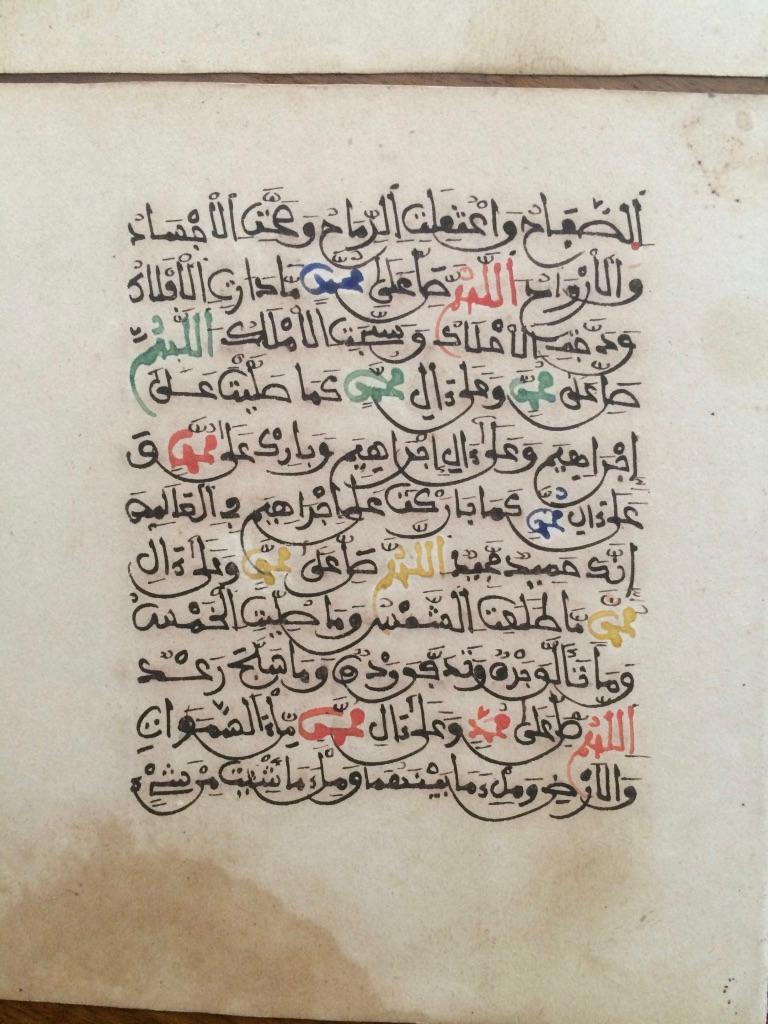 الصَّبَاحِ وَاعْتَقَلَتِ الرِّمَاحِ وَصَحَّتِ الْأَجْسَادِ
وَالْأَرْوَاحِ اللَّهُمَّ صَلِّ عَلَى مُحَمَّدٍ مَّا دَارَتِ الْأَفْلَاكُ
وَدَجَتِ الْأَحْلَاكُ وَسَبَّحَتِ الْأَمْلَاكُ اللَّهُمَّ
صَلِّ عَلَى مُحَمَّدٍ وَعَلَى ءَالِ مُحَمَّدٍ كَمَا صَلَّيْتَ عَلَى
إِبْرَاهِيمَ وَعَلَى ءَالِ إِبْرَاهِيمَ وَبَارِكْ عَلَى مُحَمَّدٍ وَ
عَلَى ءَالِ مُحَمَّدٍ كَمَا بَارَكْتَ عَلَى إِبْرَاهِيمَ فِي الْعَالَمِينَ
إِنَّكَ حَمِيدٌ مَّجِيدٌ اللَّهُمَّ صَلِّ عَلَى مُحَمَّدٍ وَعَلَى ءَالِ
مُحَمَّدٍ مَّا طَلَعَتِ الشَّمْسُ وَمَا صُلِّيَتِ الْخَمْسُ
وَمَا تَأَلَّقَ بَرْقٌ وَتَدَفَّقَ وَدْقٌ وَمَا سَبَّحَ رَعْدٌ
اللَّهُمَّ صَلِّ عَلَى مُحَمَّدٍ وَعَلَى ءَالِ مُحَمَّدٍ مِّلْءَ السَّمَوَاتِ
وَالْأَرْضِ وَمِلْءَ مَا بَيْنَهُمَا وَمِلْءَ مَا شِئْتَ مِنْ شَيْءٍ